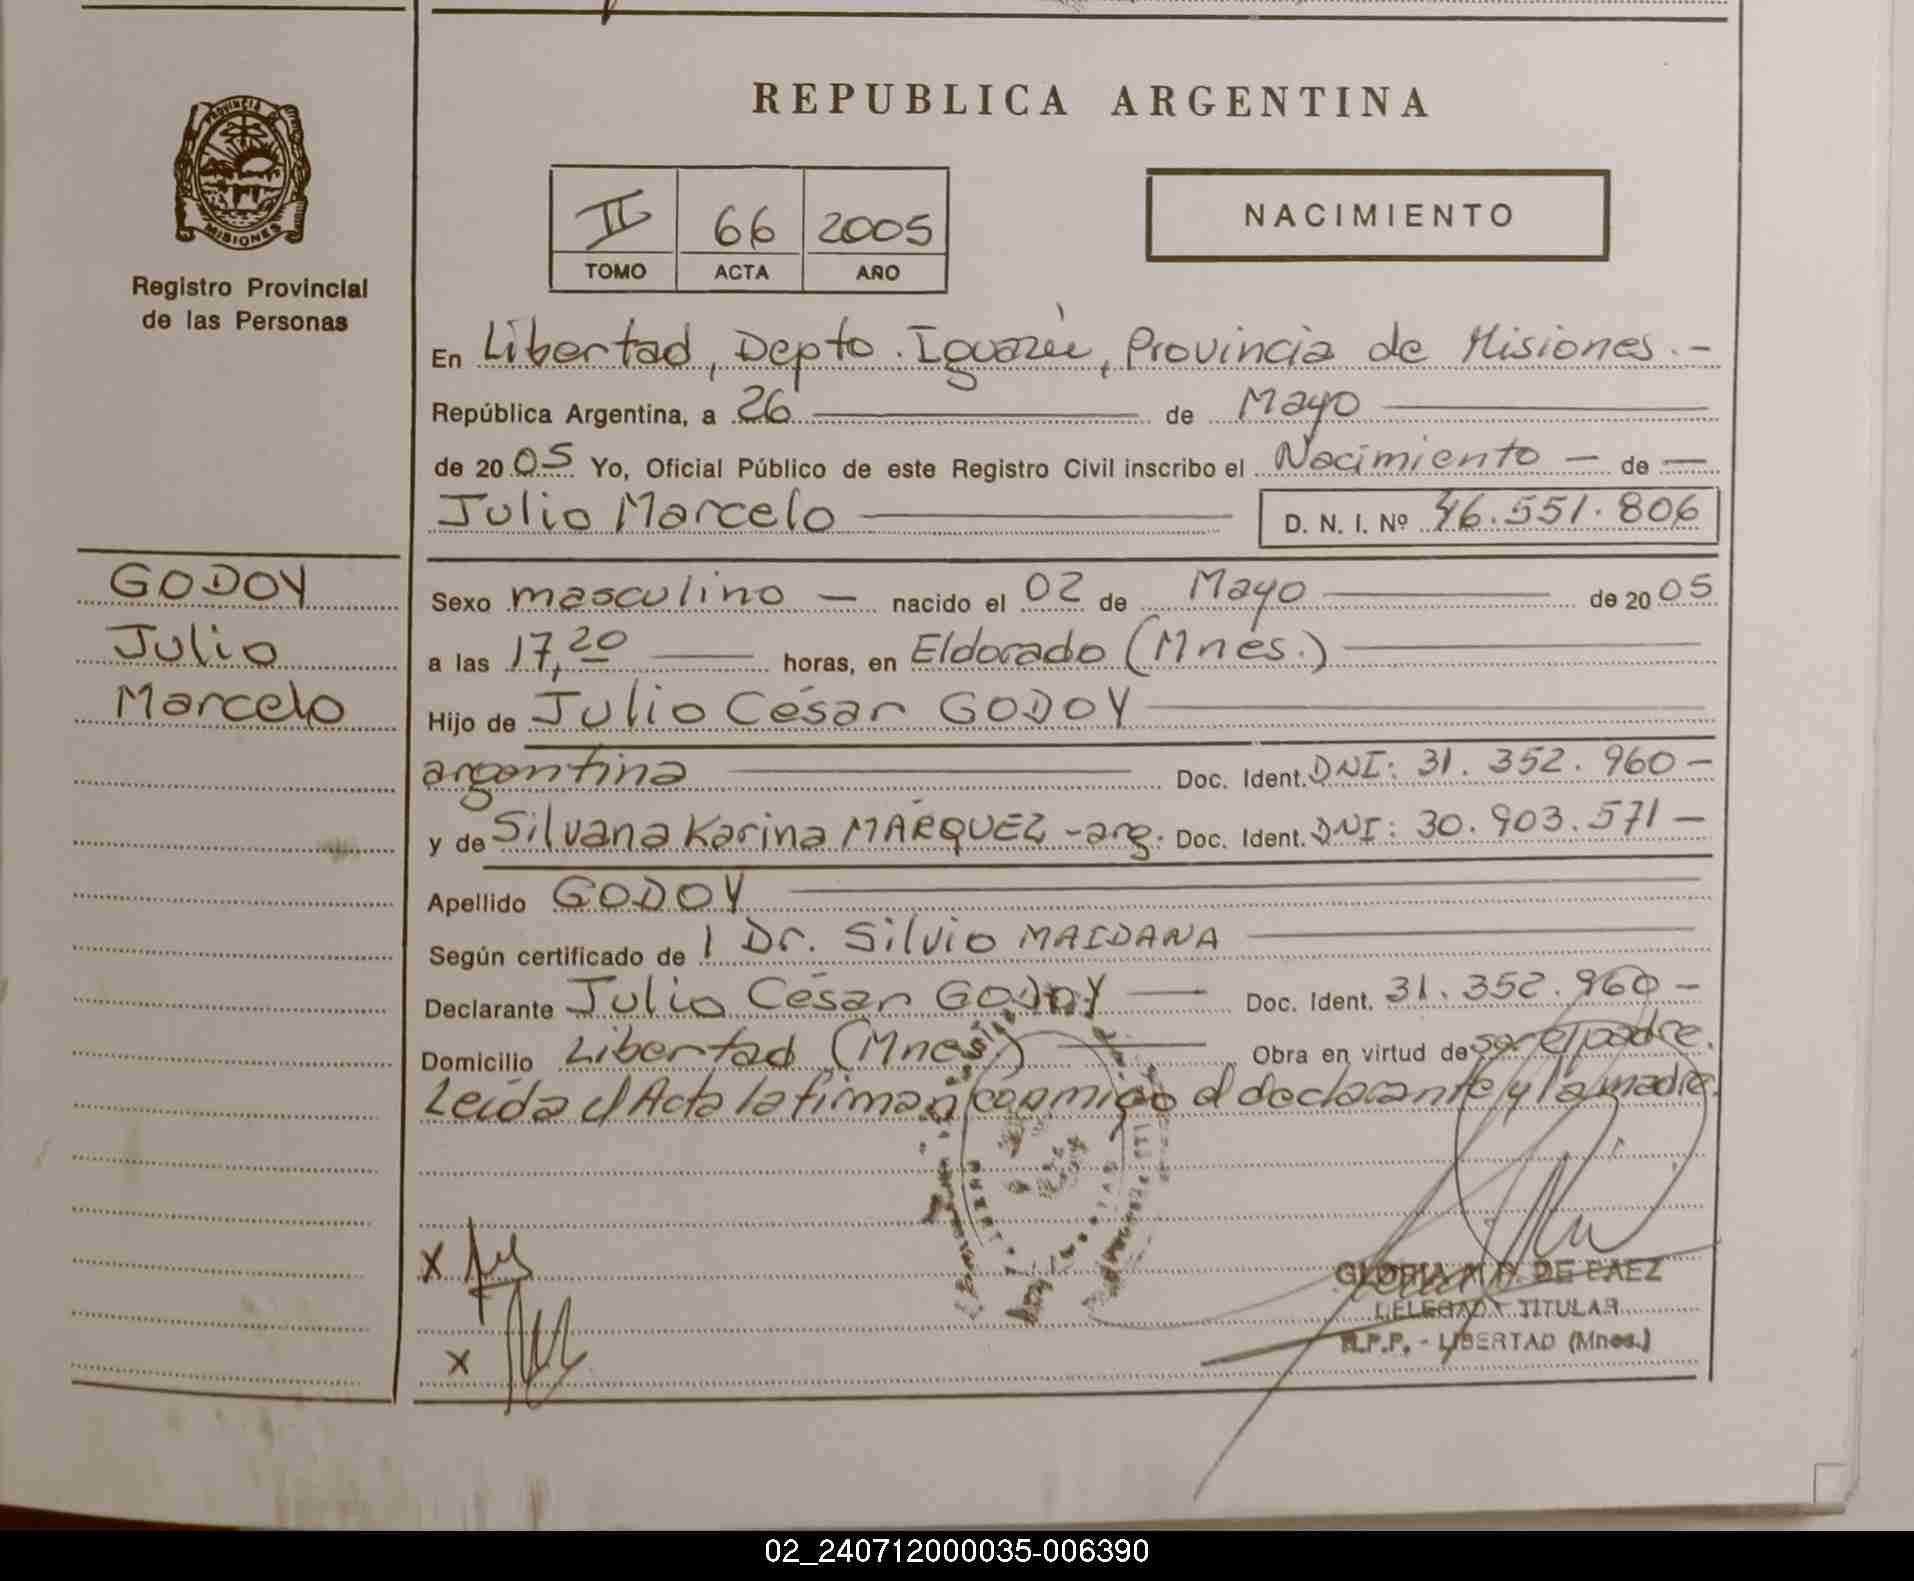 REPUBLICA ARGENTINA
PROVINCIA
MISIONES
Registro Provincial
de las Personas
II 66 2005
TOMO ACTA AÑO
NACIMIENTO
En Libertad, Depto. Iguazú, Provincia de Misiones.-
República Argentina, a 26 de Mayo
de 2005 Yo, Oficial Público de este Registro Civil inscribo el Nacimiento - de -
Julio Marcelo D. N. I. Nº 46.551.806
GODOY
Julio
Marcelo
Sexo masculino - nacido el 02 de Mayo de 2005
a las 17,20 horas, en Eldorado (Mnes.)
Hijo de Julio César GODOY
argentina Doc. Ident. DNI: 31.352.960-
y de Silvana Karina MÁRQUEZ -arg. Doc. Ident. DNI: 30.903.571-
Apellido GODOY
Según certificado de l Dr. Silvio MAIDANA
Declarante Julio César GODOY - Doc. Ident. 31.352.960-
Domicilio Libertad (Mnes.) Obra en virtud de ser el padre.
Leída el Acta la firman conmigo el declarante y la madre.
x
x
GLORIA DE PAEZ
DELEGADA TITULAR
R.P.P. - LIBERTAD (Mnes.)
02_240712000035-006390